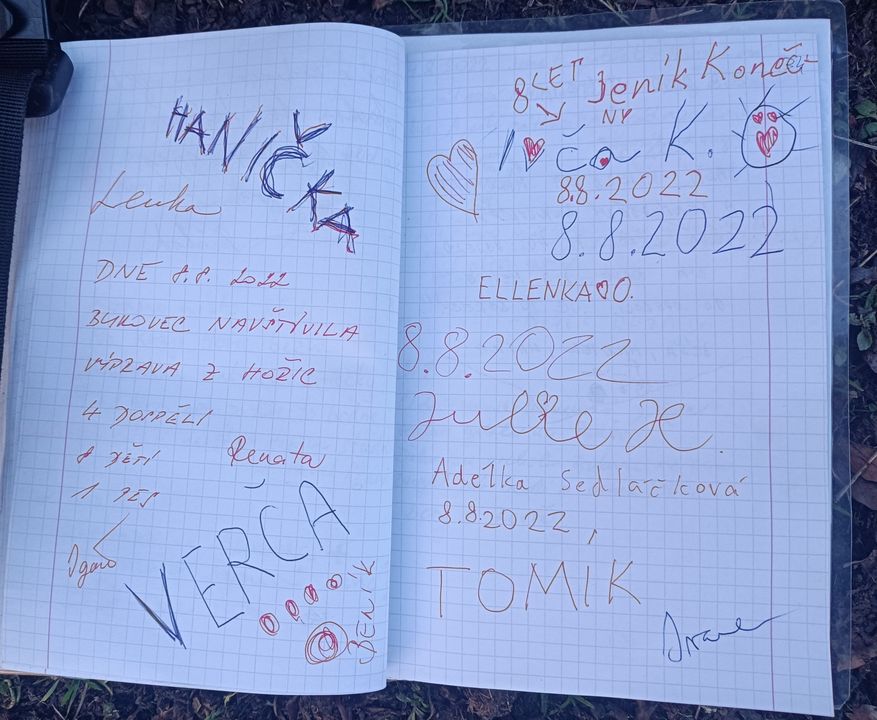 HANIČKA
Lenka
DNE 8.8. 2022
BUKOVEC NAVŠTÍVILA
VÝPRAVA Z HOŽIC
4 DOSPĚLÍ
8 DĚTÍ
1 PES
Renata
VERČA
JENÍK
8 LET Jeník Koneč
NY
ča K.
8.8.2022
8.8.2022
ELLENKA O.
8.8.2022
Julie H.
Adélka Sedláčková
8.8.2022,
TOMIK